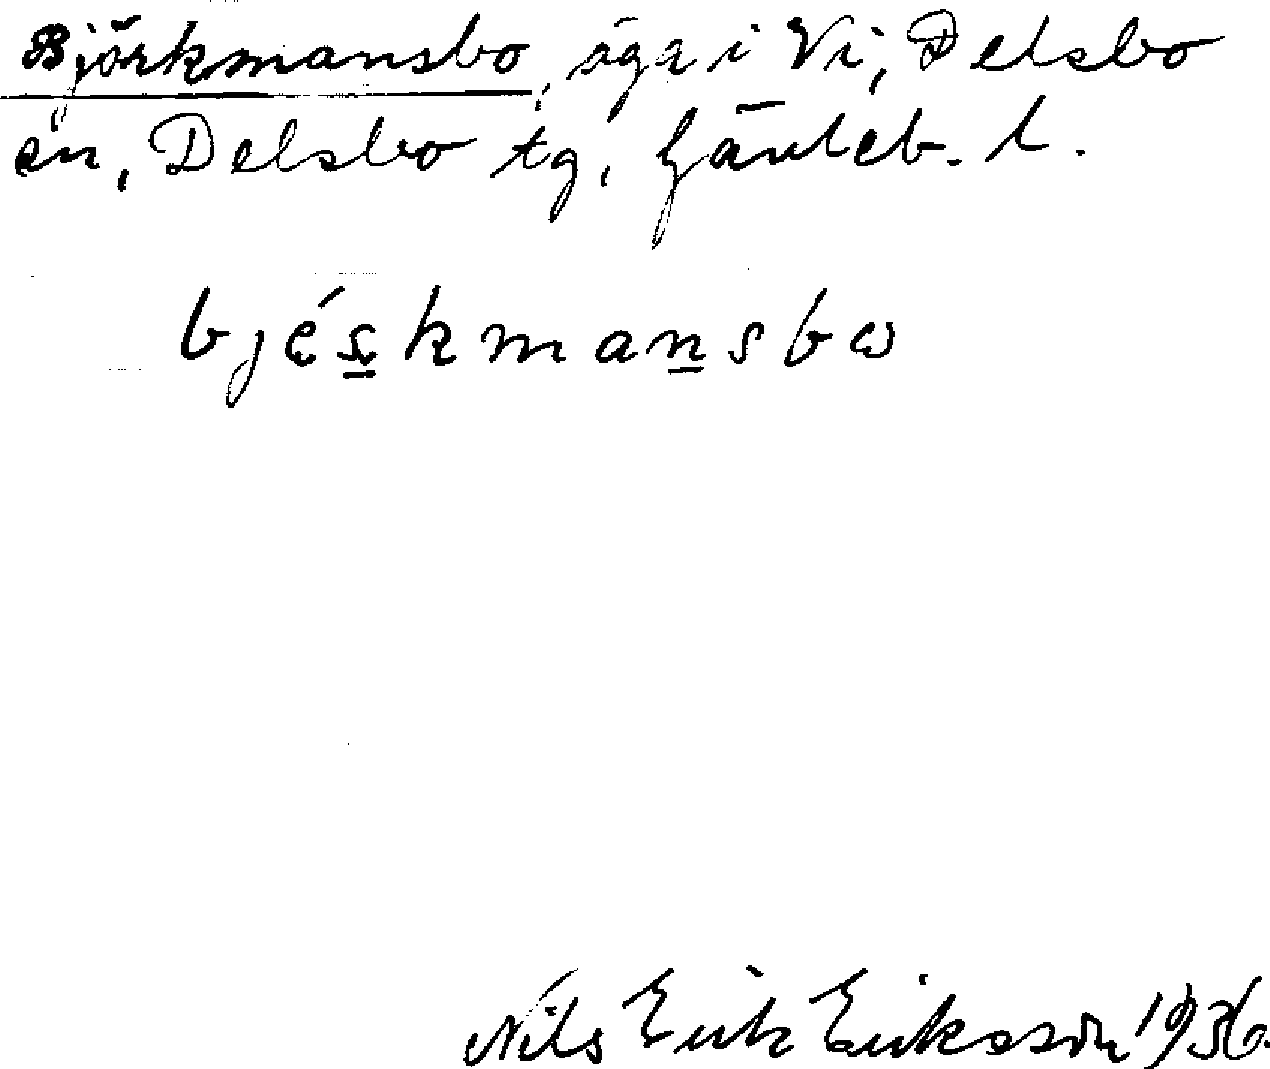 Björkmansbo, äga i Vi, Delsbo
sn, Delsbo tg, Gävleb. l.
bjéṣkmansbω
Nils Erik Eriksson 1936.